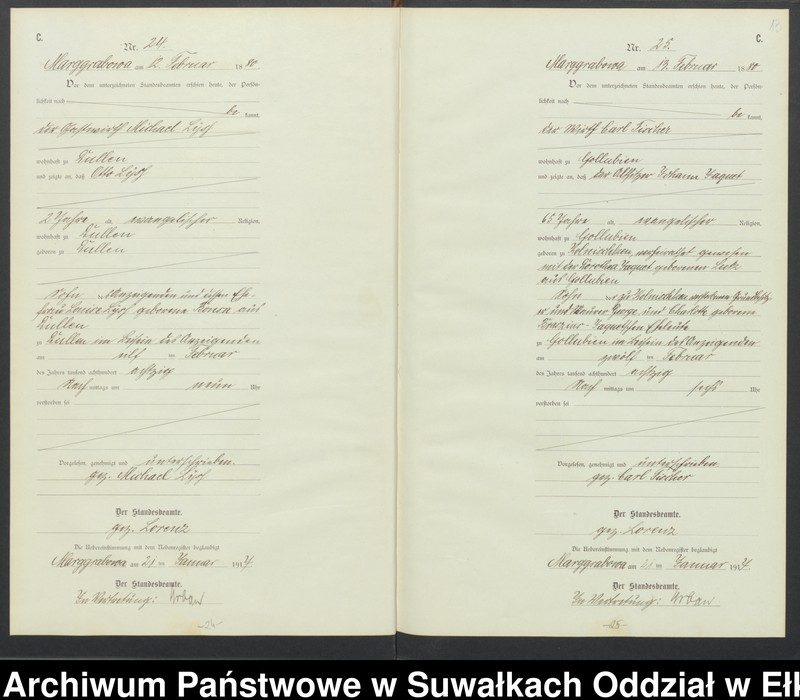 C.
Nr. 24.
Marggrabowa am 12. Februar 1880
Vor dem unterzeichneten Standesbeamten erschien heute, der Persön-
lichkeit nach
be kannt,
der Gastwirth Michael
wohnhaft zu Lullen
und zeigte an, daß Otto
2 Jahre alt, evangelischer Religion,
wohnhaft zu Lullen
geboren zu Lullen
Sohn des Anzeigenden und dessen Ehe-
frau Louise geborene aus
Lullen
zu Lullen im Beisein des Anzeigenden
am elf ten Februar
des Jahres tausend achthundert achtzig
Nach mittags um neun Uhr
verstorben sei
Vorgelesen, genehmigt und unterschrieben.
gez. Michael
Der Standesbeamte.
gez. Lorenz
Die Uebereinstimmung mit dem Nebenregister beglaubigt
Marggrabowa am 21 ten Januar 1914
Der Standesbeamte.
In Vertretung: Urban
-24-
C.
Nr. 25.
Marggrabowa am 13. Februar 1880
Vor dem unterzeichneten Standesbeamten erschien heute, der Persön-
lichkeit nach
be kannt,
der Wirth Carl Fischer
wohnhaft zu Gollubien
und zeigte an, daß der Altsitzer Johann Jaquet
65 Jahre alt, evangelischer Religion,
wohnhaft zu Gollubien
geboren zu verheirathet gewesen
mit der Dorothea Jaquet geborenen
aus Gollubien
Sohn des zu verstorbenen
und Maurer George und Charlotte geborene
Jaquetschen Eheleute
zu Gollubien im Beisein des Anzeigenden
am zwölf ten Februar
des Jahres tausend achthundert achtzig
Nach mittags um sechs Uhr
verstorben sei
Vorgelesen, genehmigt und unterschrieben.
gez. Carl Fischer
Der Standesbeamte.
gez. Lorenz
Die Uebereinstimmung mit dem Nebenregister beglaubigt
Marggrabowa am 21 ten Januar 1914
Der Standesbeamte.
In Vertretung: Urban
-25-
Archiwum Państwowe w Suwałkach Oddział w Eł